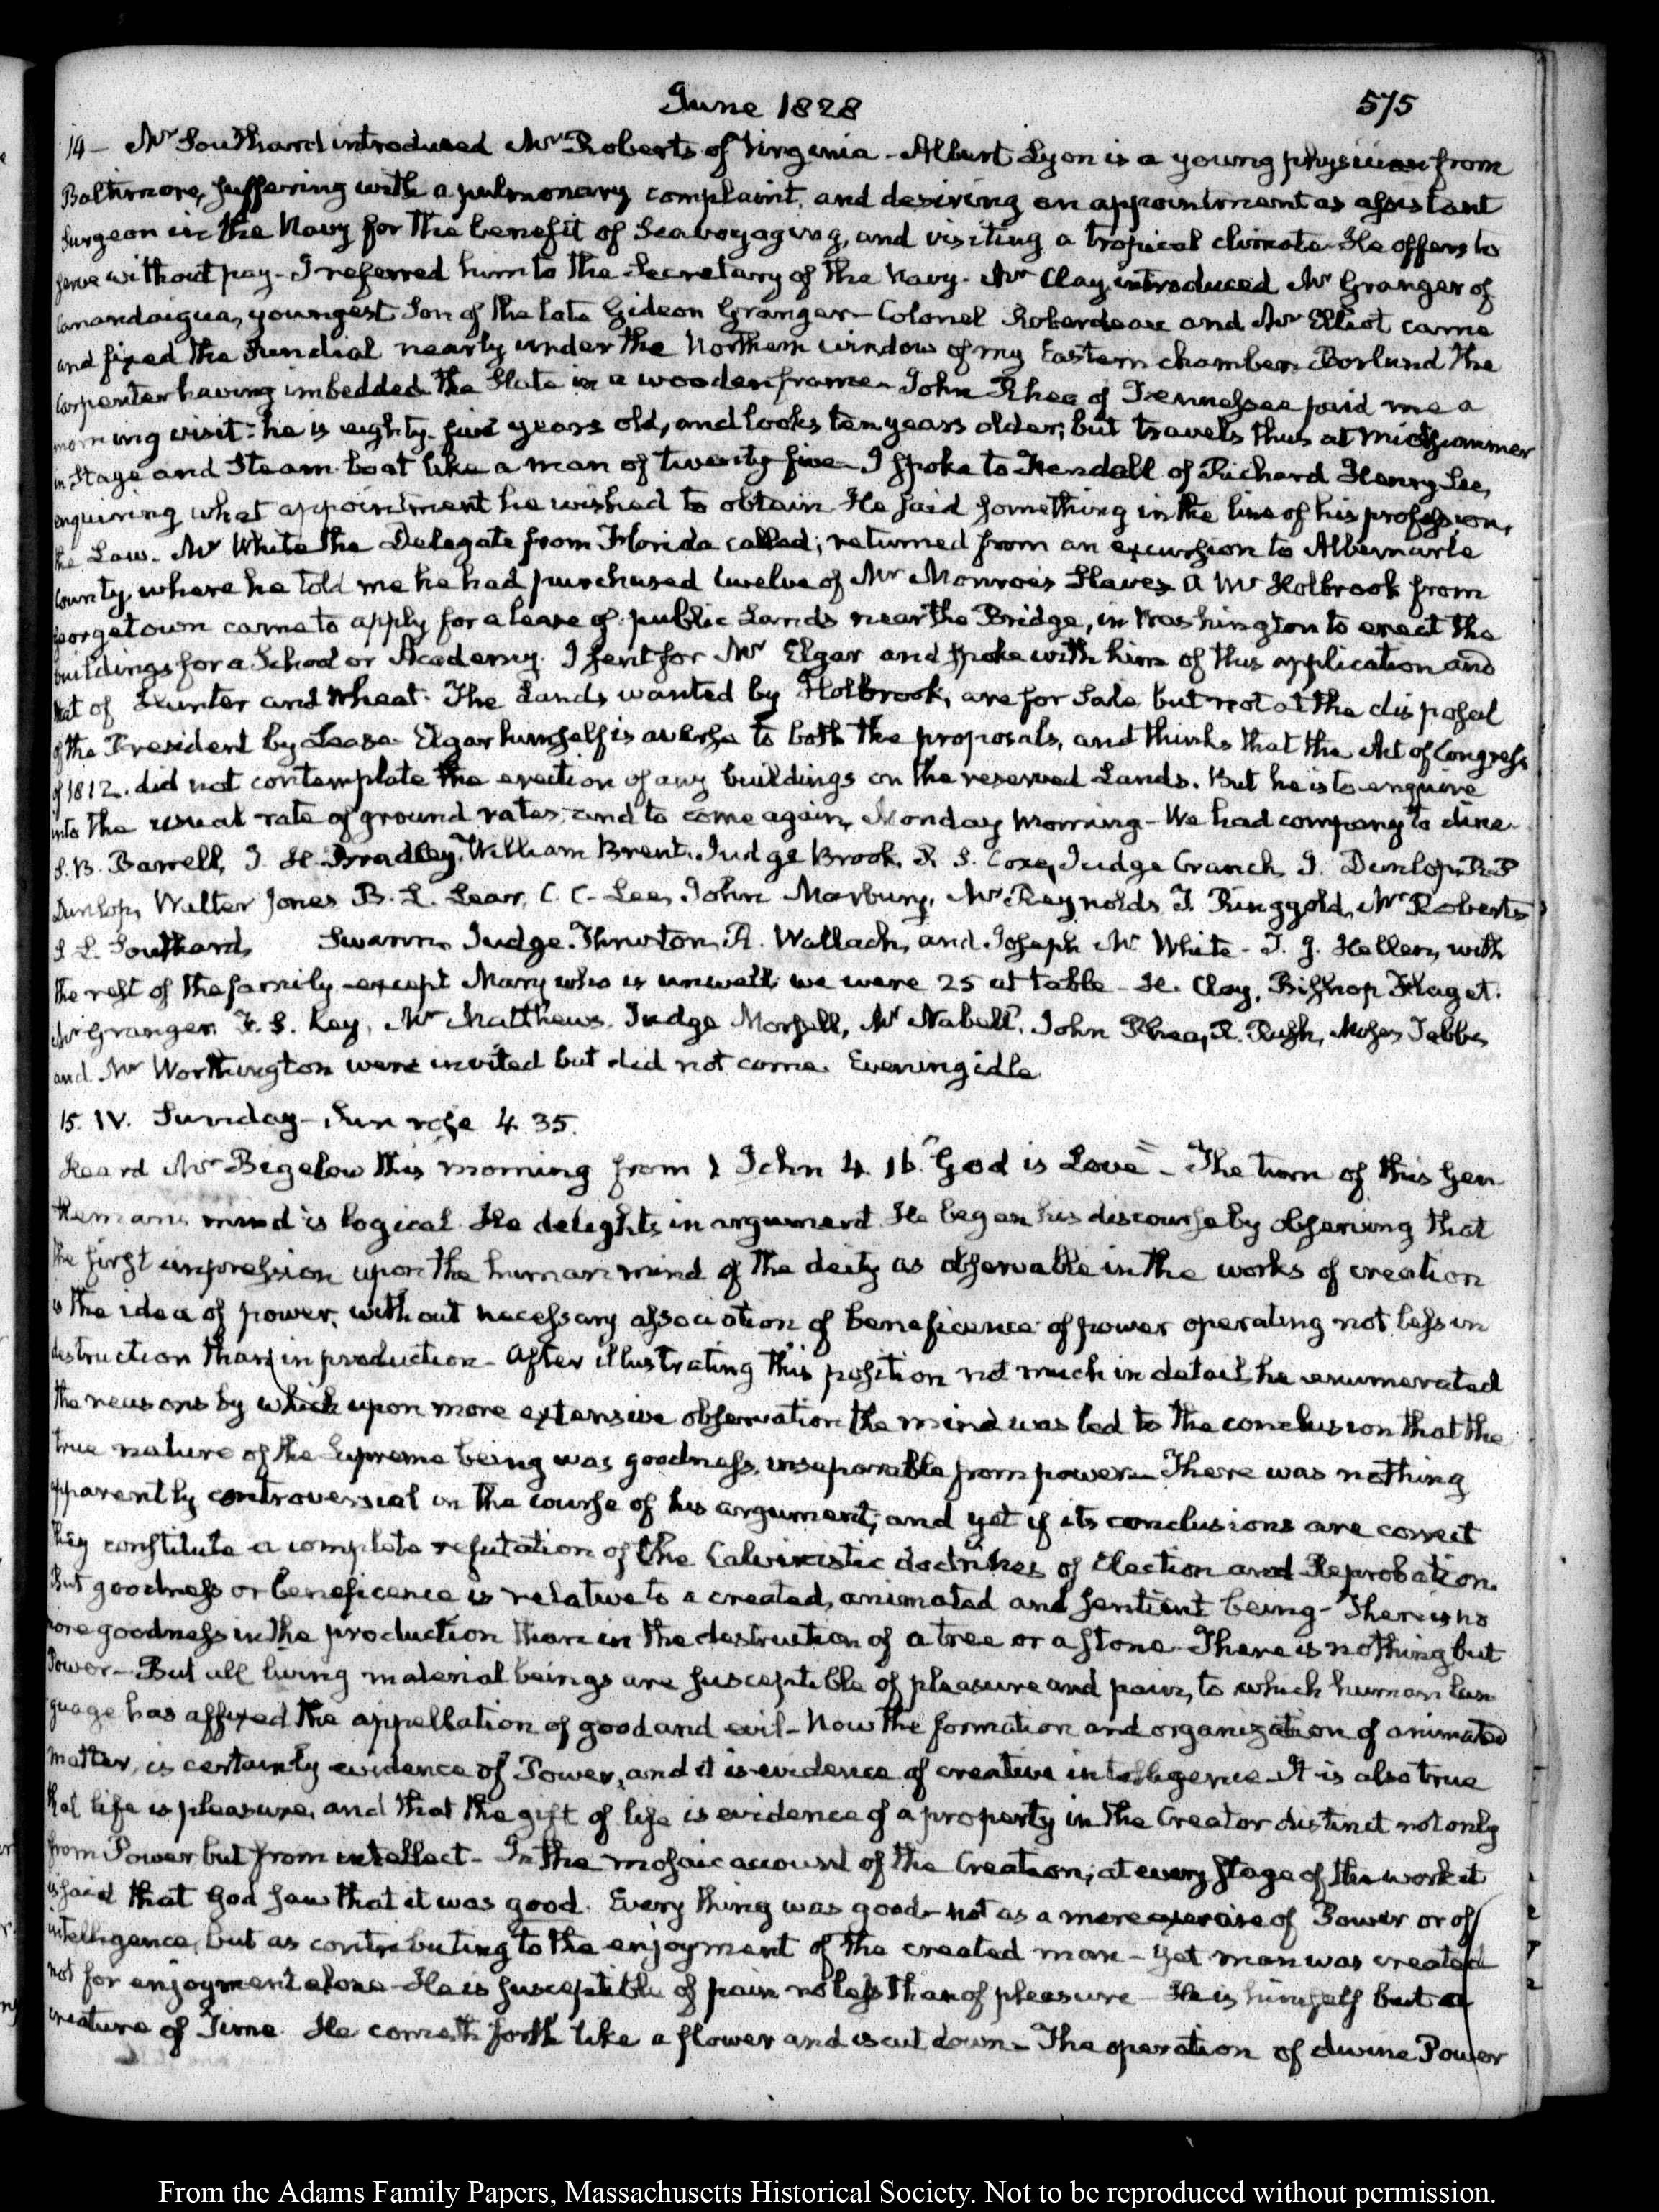 June 1828
575
14 - Mr Southard introduced Mr Roberts of Virginia - Albert Lyon is a young physician from
Baltimore, suffering with a pulmonary complaint, and desiring an appointment as assistant
Surgeon in the Navy for the benefit of Sea voyaging, and visiting a tropical climate. He offers to
serve without pay - I referred him to the Secretary of the Navy - Mr Clay introduced Mr Granger of
Canandaigua, youngest Son of the late Gideon Granger - Colonel Roberdeau and Mr Elliot came
and fixed the Sundial nearly under the Northern window of my Eastern chamber. Borlund the
Carpenter having imbedded the Slate in a wooden frame - John Rhea of Tennessee paid me a
morning visit: he is eighty-five years old, and looks ten years older; but travels thus at Midsummer
in Stage and Steam-boat like a man of twenty five - I spoke to Kendall of Richard Henry Lee,
enquiring what appointment he wished to obtain. He said something in the line of his profession,
the Law. Mr White the Delegate from Florida called; returned from an excursion to Albemarle
County, where he told me he had purchased twelve of Mr Monroe's Slaves. A Mr Holbrook from
Georgetown came to apply for a lease of public Lands near the Bridge, in Washington to erect the
buildings for a School or Academy. I sent for Mr Elgar and spoke with him of this application and
that of Hunter and Wheat. The Lands wanted by Holbrook, are for Sale but not at the disposal
of the President by Lease. Elgar himself is averse to both the proposals, and thinks that the Act of Congress
of 1812. did not contemplate the erection of any buildings on the reserved Lands. But he is to enquire
into the usual rate of ground rates, and to come again, Monday Morning - We had company to dine.
S. B. Barrell, J. H. Bradley, William Brent, Judge Brook, R. S. Coxe, Judge Cranch, J. Dunlop, R. P
Dunlop, Walter Jones B. L. Lear, C. C. Lee, John Marbury, Mr Reynolds T. Ringgold, Mr Roberts
S L. Southard, Swann, Judge Thruston, R. Wallach, and Joseph M. White - T. J. Hellen, with
the rest of the family except Mary who is unwell: we were 25 at table - H. Clay, Bishop Flaget.
Mr Granger. F. S. Key, Mr Matthews. Judge Morsell, Mr Nabell, John Rhea, R. Rush, Moses Tebbs
and Mr Worthington were invited but did not come. Evening idle.
15. IV. Sunday - Sun rose 4. 35.
Heard Mr Bigelow this morning from 1 John 4. 16. "God is Love" - The turn of this Gen
tleman's mind is logical. He delights in argument. He began his discourse by observing that
the first impression upon the human mind of the deity as observable in the works of creation
is the idea of power, without necessary association of beneficence: of power operating not less in
destruction than in production - After illustrating this position not much in detail, he enumerated
the reasons by which upon more extensive observation the mind was led to the conclusion that the
true nature of the Supreme being was goodness, inseparable from power - There was nothing
apparently controversial in the course of his argument, and yet if its conclusions are correct
they constitute a complete refutation of the Calvinistic doctrines of Election and Reprobation.
But goodness or beneficence is relative to a created, animated and sentient being - There is no
more goodness in the production than in the destruction of a tree or a stone. There is nothing but
Power - But all living material beings are susceptible of pleasure and pain, to which human lan
guage has affixed the appellation of good and evil - Now the formation and organization of animated
matter, is certainly evidence of Power, and it is evidence of creative intelligence - It is also true
that life is pleasure, and that the gift of life is evidence of a property in the Creator distinct not only
from Power but from intellect - In the mosaic account of the Creation, at every stage of the work it
is said that God saw that it was good. Every thing was good - not as a mere exercise of Power or of
intelligence, but as contributing to the enjoyment of the created man - yet man was created
not for enjoyment alone - He is susceptible of pain no less than of pleasure - He is himself but a
creature of Time. He cometh forth like a flower and is cut down - The operation of divine Power
From the Adams Family Papers, Massachusetts Historical Society. Not to be reproduced without permission.